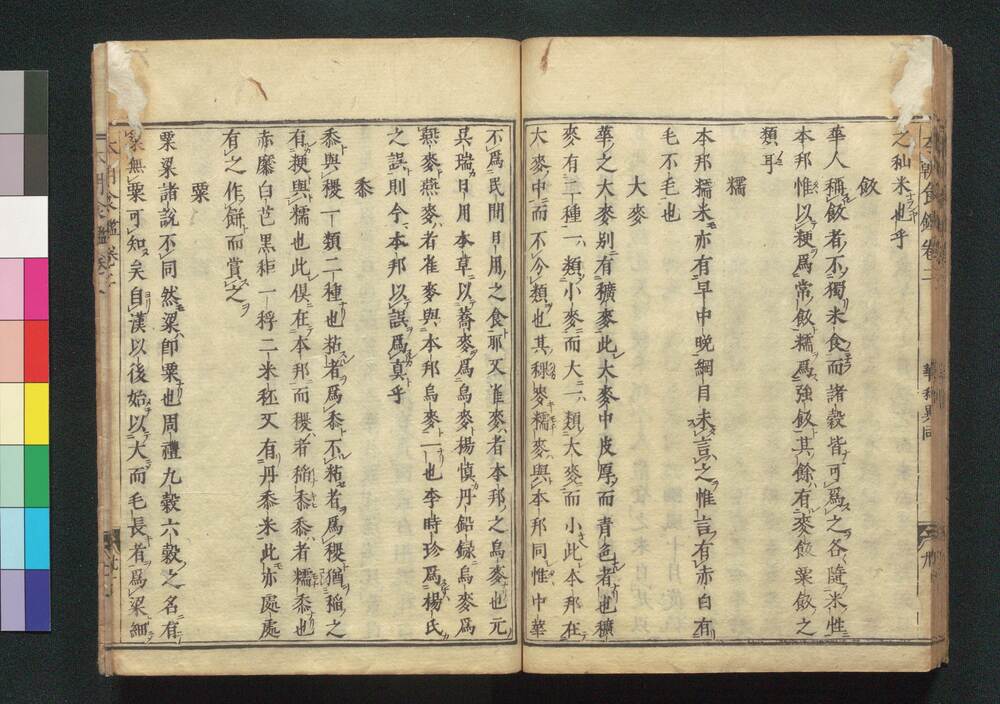 本朝食鑑卷二
華和異同
之秈米也乎
飯
華人稱飯者不獨米食而諸穀皆可爲之各隨米性
本邦惟以粳爲常飯糯爲強飯其餘有麥飯粟飯之
類耳
糯
本邦糯米亦有早中晩綱目未言之惟言有赤白有
毛不毛也
大麥
華之大麥別有穬麥此大麥中皮厚而青色者也穬
麥有二種一類小麥而大一類大麥而小此本邦在
大麥中而不分類也其稞麥糯麥與本邦同惟中華
不爲民間日用之食耶又雀麥者本邦之烏麥也元
呉瑞日用本草以蕎麥爲烏麥楊慎丹鉛録烏麥爲
燕麥燕麥者雀麥與本邦烏麥一也李時珍爲楊氏
之誤則今本邦以誤爲真乎
黍
黍與稷一類二種也粘者爲黍不粘者爲稷猶稲之
有粳與糯也此倶在本邦而稷者稲黍黍者糯黍也
赤黂白芑黒秬一稃二米秠又有丹黍米此亦處處
有之作餅而賞之
粟
粟粱諸説不同然粱即粟也周禮九穀六穀之名有
粱無粟可知矣自漢以後始以大而毛長者爲粱細